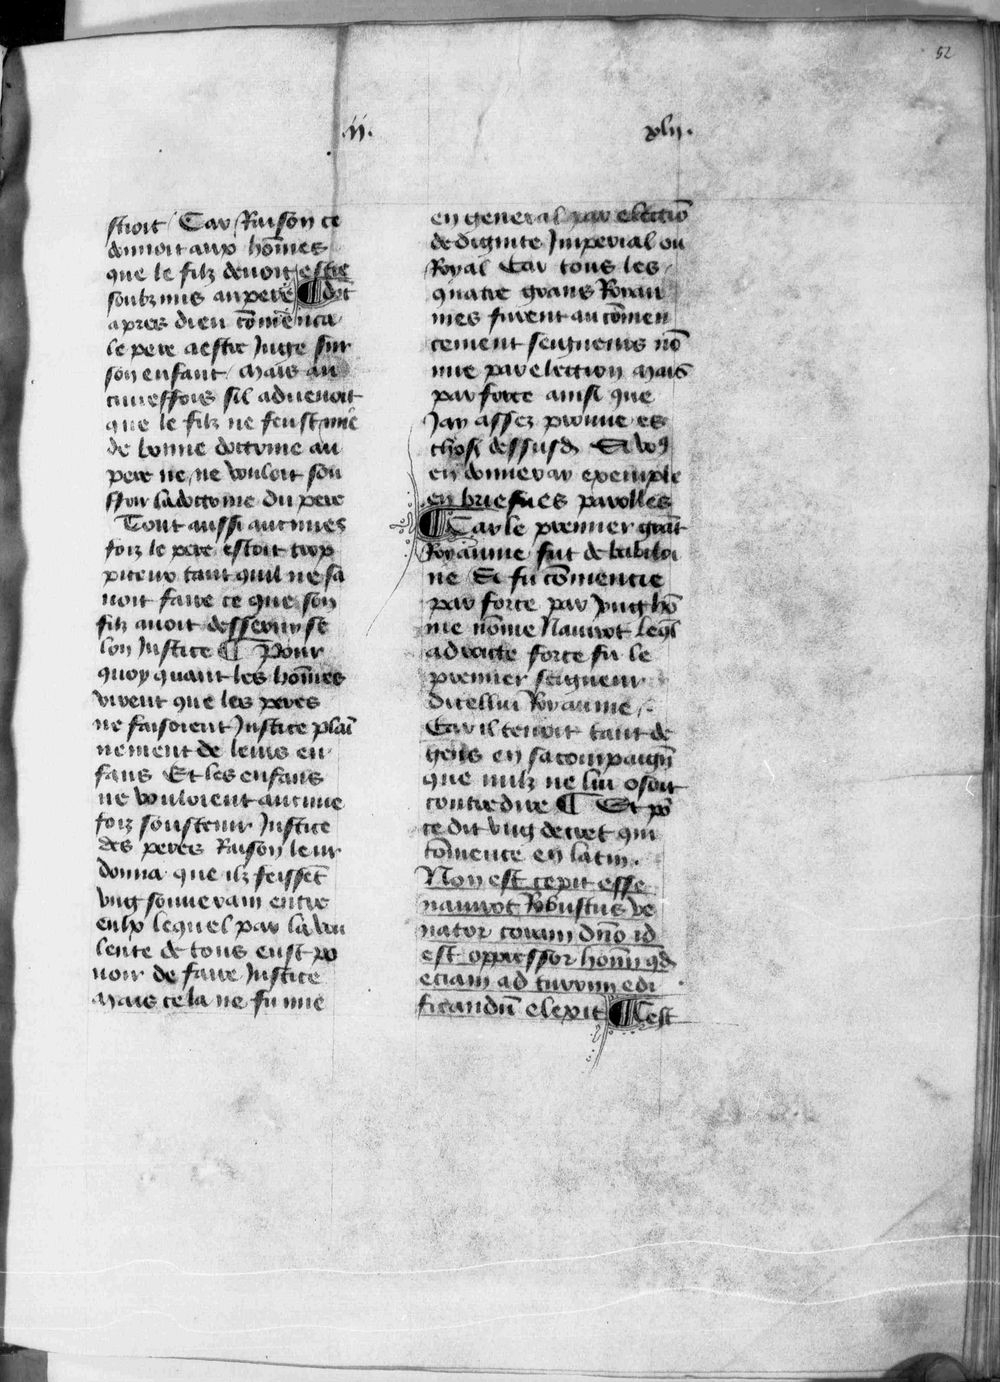 52
.ij.
xlij.
stroit / Car Raison ce
donnoit aux hōmes
que le filz deuoit estre
soubzmis au pere ¶ dōt
apres dieu cōmēnca
le pere a estre Juge sur
son enfant / Mais au
cuneffois sil aduenoit
que le filz ne feust mie
de bonne doctrine au
pere ne ne vouloit sou
ffrir la doctrine du pere
Tout aussi aucunes
foiz le pere estoit trop
piteux tant quil ne sa
uoit faire ce que son
filz auoit desseruy se
lon Justice ¶ Pour
quoy quant les hōmes
virent que les peres
ne faisoient Justice plai
nement de leurs en
fans Et les enfans
ne vouloient aucune
foiz soustenir Justice
des peres Raison leur
donna que ilz feissēt
vng souuerain entre
eulx lequel par la vou
lente de tous eust po
uoir de faire Justice
Mais cela ne fu mie
en general par electiō
de dignite Jmperial ou
Royal Car tous les
quatre grans Royau
mes furent au cōmen
cement seigneurs nō
mie par election mais
par force ainsi que
Jay assez prouue es
chos dessusd Si voꝰ
en donneray exemple
en briefues parolles
¶ Car le premier grāt
Royaume fut de babiloi
ne Si fu cōmencie
par force par vng hō
me nōme Naurot leql̄
a droicte force fu le
premier seigneur
dicellui Royaume /.
Car il tenoit tant de
gens en sa compaignī
que nulz ne lui osoit
contredire ¶ Et po᷑
ce dit vng decret qui
cōmence en latin.
Non est cepit esse
naurot Robustus ve
nator coram dn̄o id
est oppressor hom̄ qd̄
eciam ad turrim edi
ficandū elexit ¶ Cest